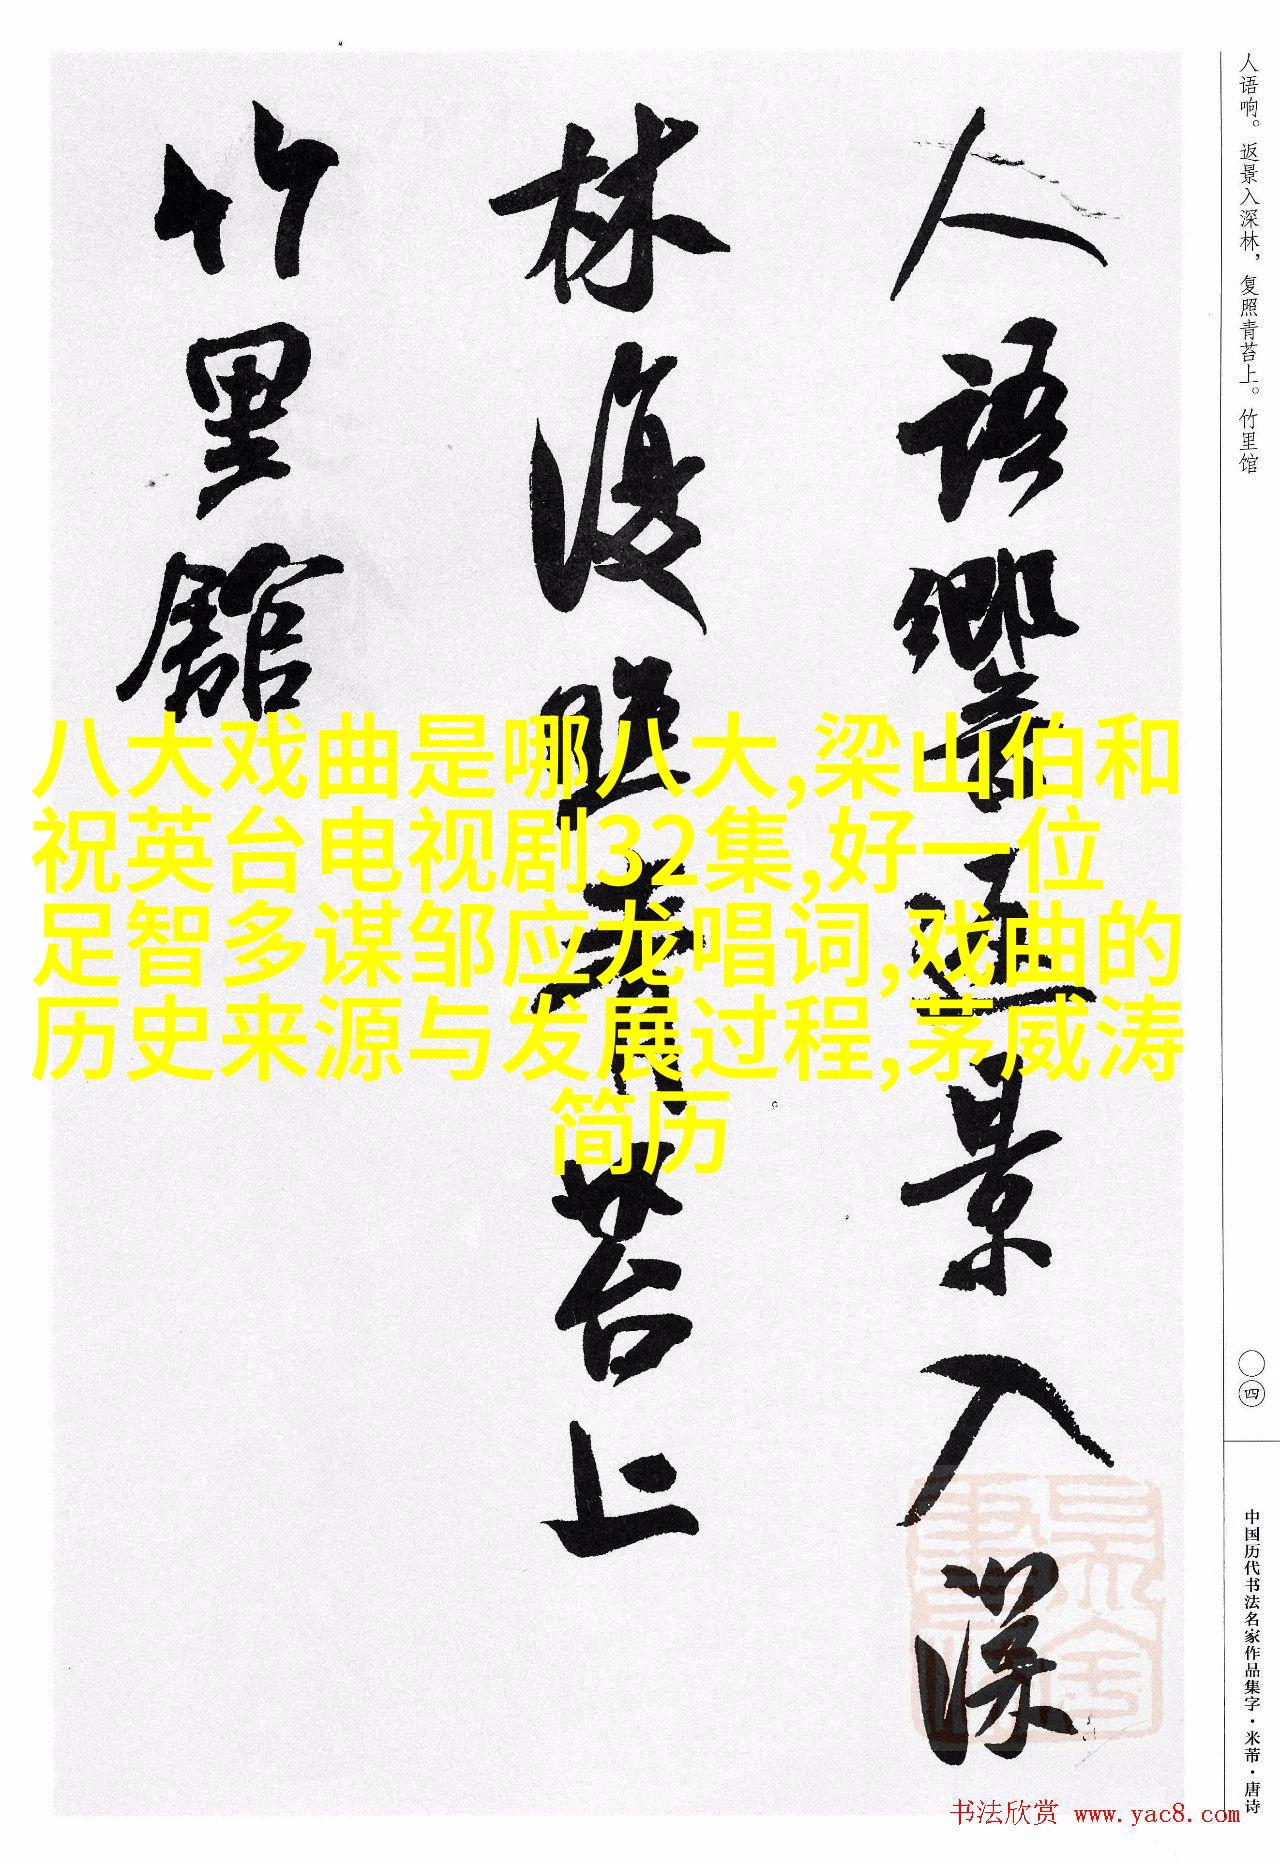 人语响。返景入深林，复照青苔上。竹里馆
人語響返景入深
林復照青苔上
竹里館
八大戏曲是哪八大,梁山伯和
祝英台电视剧32集,好一位
足智多谋邹应龙唱词,戏曲的
历史来源与发展过程,茅威涛
简历
〇四
中国历代书法名家作品集字·米芾·唐诗
书法欣赏 www.yac8.com